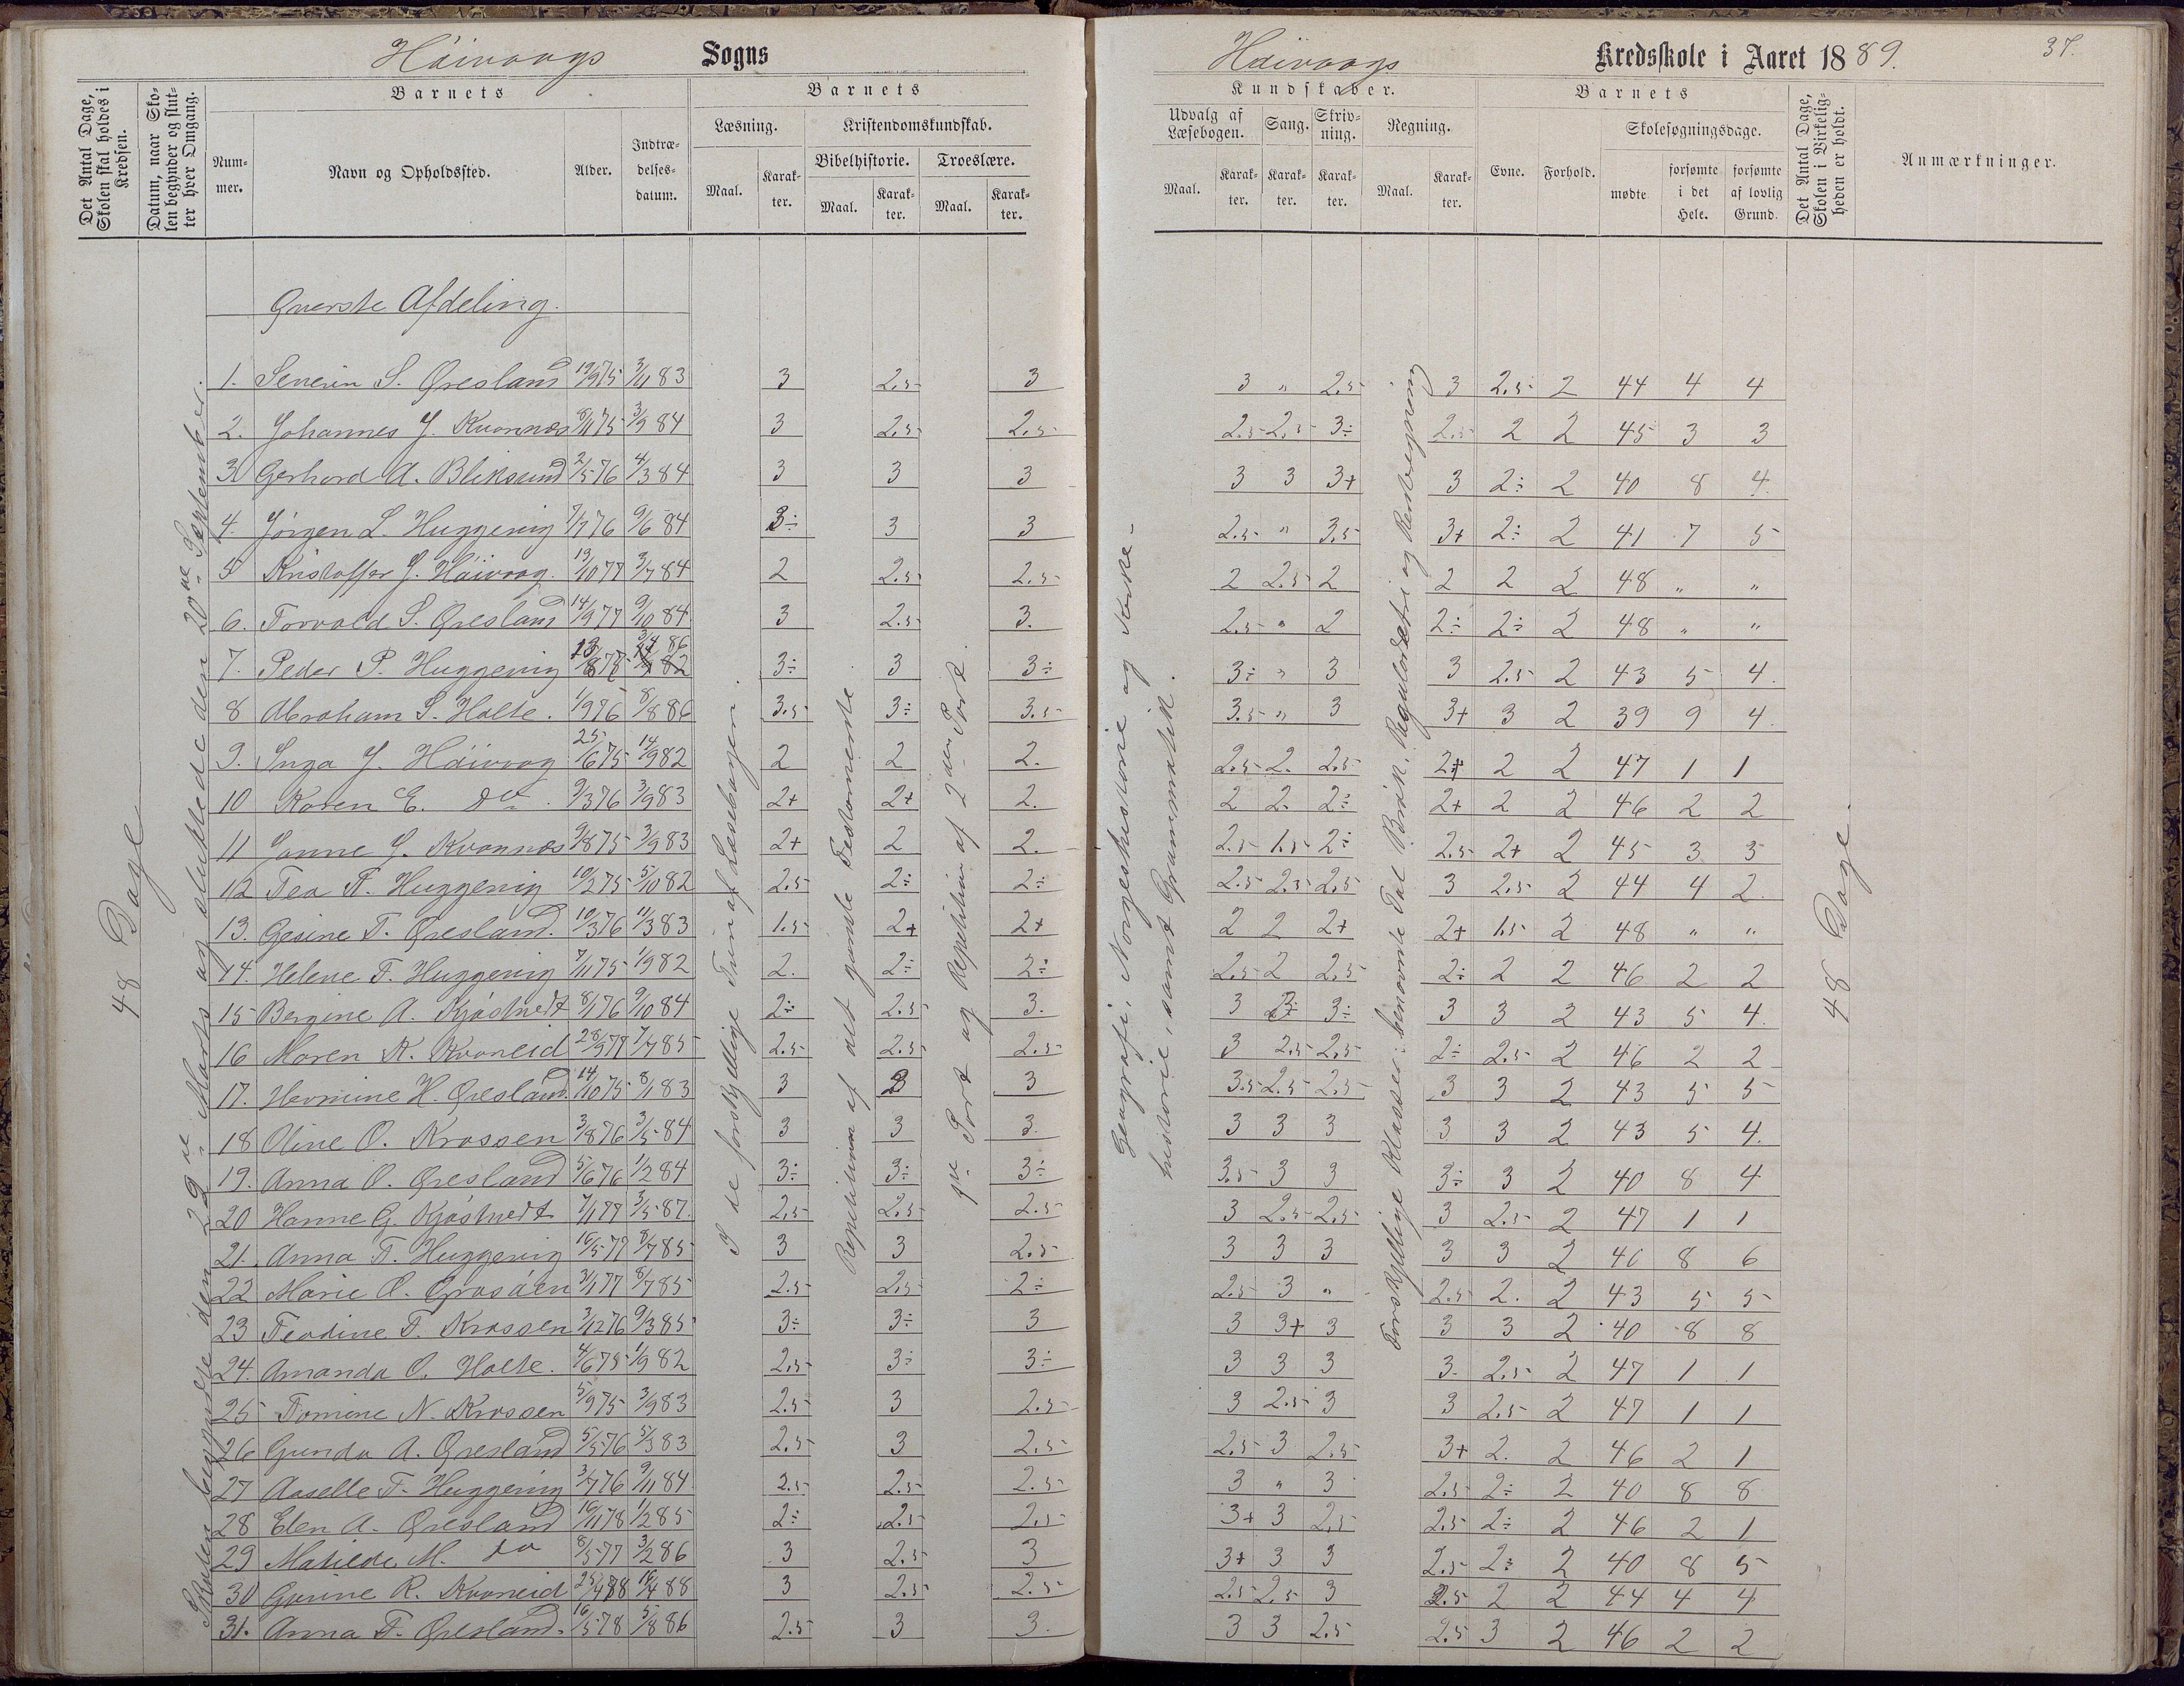 Håivaags Sogns
Håivaags Kredsskole i Aaret 1889. 37.
Det Antal Dage, Skolen skal holdes i Kredsen.
Datum, naar Skolen begynder og slutter hver Omgang.
Barnets
Nummer.
Navn og Opholdssted.
Alder.
Indtrædelsesdatum.
Barnets
Læsning.
Kristendomskundskab.
Bibelhistorie.
Troeslære.
Maal. Karakter. Maal. Karakter. Maal. Karakter.
Kundskaber.
Udvalg af Læsebogen.
Sang.
Skrivning.
Regning.
Maal. Karakter. Karakter. Karakter. Maal. Karakter.
Barnets
Evne. Forhold.
Skolesøgningsdage.
mødte
forsømte i det Hele.
forsømte af lovlig Grund.
Det Antal Dage, Skolen i Virkeligheden er holdt.
Anmærkninger.
48 Dage
Skolen begyndte den 29de Marts og sluttede den 20de September.
I de forskjellige Trin af Læsebogen.
Repetition af det gamle Testamente.
1ste Part og Repetition af 2den Part.
Geografi, Norgeshistorie og Kirkehistorie, samt Grammatik.
Forskjellige Klasser: benævnte Tal, Brøk, Reguladetri og Rentesregning
48 Dage.
Øverste Afdeling.
1. Severin S. Øresland 19/9 75 3/11 83 3 2.5 3 3 " 2.5 3 2.5 2 44 4 4
2. Johannes J. Kvannæs 8/11 75 3/9 84 3 2.5 2.5 2.5 2.5 3÷ 2.5 2 2 45 3 3
3. Gerhard A. Bliksund 2/5 76 4/3 84 3 3 3 3 3 3+ 3 2÷ 2 40 8 4
4. Jørgen L. Huggenig 7/7 76 9/6 84 3÷ 3 3 2.5 " 3.5 3+ 2÷ 2 41 7 5
5 Kristoffer J. Håivaag. 13/10 77 3/7 84 2 2.5 2.5 2 2.5 2 2 2 2 48 " "
6. Torvald S. Øresland 14/9 77 9/10 84 3 2.5 3. 2.5 " 2 2÷ 2÷ 2 48 " "
7. Peder P. Huggenig 13/8 78 3/4 86 3÷ 3 3÷ 3÷ " 3 3 2.5 2 43 5 4.
8 Abraham S. Holte. 1/9 76 8/8 86 3.5 3÷ 3.5 3.5 " 3 3+ 3 2 39 9 4.
9. Inga J. Håivaag 25/6 75 14/9 82 2 2 2. 2.5 2. 2.5 2+ 2 2 47 1 1
10 Karen E. dto. 9/3 76 3/9 83 2+ 2+ 2. 2 2. 2÷ 2+ 2 2 46 2 2
11 Janne G. Kvannæs 9/8 75 3/9 83 2+ 2 2. 2.5 1.5 2÷ 2.5 2+ 2 45 3 3
12 Tea T. Huggenig 10/2 75 5/10 82 2.5 2÷ 2÷ 2.5 2.5 2.5 3 2.5 2 44 4 2.
13. Gesine T. Øresland. 10/3 76 11/3 83 1.5 2+ 2+ 2 2 2+ 2+ 1.5 2 48 " "
14. Helene T. Huggenig 7/11 75 1/9 82 2. 2÷ 2÷ 2.5 2 2.5 2÷ 2 2 46 2 2
15 Bergine A. Kjøstvedt 8/1 76 9/10 84 2÷ 2.5 3. 3 3÷ 3÷ 3 3 2 43 5 4.
16 Maren K. Kvaneid 28/9 77 7/7 85 2.5 2.5 2.5 3 2.5 2.5 2÷ 2.5 2 46 2 2
17. Hermine H. Øresland. 14/10 75 8/1 83 3 3 3 3.5 2.5 2.5 3 3 2 43 5 5
18 Oline O. Krossen 3/8 76 3/5 84 3 3 3. 3 3 3 3 3 2 43 5 4.
19. Anna O. Øresland 5/6 76 1/2 84 3÷ 3÷ 3÷ 3.5 3 3 3÷ 3 2 40 8 4
20 Hanne G. Kjøstvedt 7/1 77 3/5 87. 2.5 2.5 2.5 3 2.5 2.5 3 2.5 2 47 1 1
21. Anna T. Huggenig 16/5 77 8/7 85 3 3 2.5 3 3 3 3 3 2 40 8 6
22 Marie O. Grosåen 3/1 77 8/7 85 2.5 2.5 2÷ 2.5 3 " 2.5 2. 2 43 5 5
23 Teodine T. Krossen 3/12 76 9/3 85 3÷ 3÷ 3 3 3+ 3 3 3 2 40 8 8
24. Amanda O. Holte. 4/6 75 1/9 82 2.5 3÷ 3÷ 3 3 3 3. 2.5 2 47 1 1
25 Tomine N. Krossen 5/9 75 3/9 83 2.5 3 2.5 3 2.5 3 3 2.5 2 47 1 1
26 Gunda A. Øresland 5/5 76 5/3 83 2.5 3 2.5 2.5 3 2.5 3+ 2. 2 46 2 1
27 Aaselle T. Huggenig 3/7 76 9/11 84 2.5 2.5 2.5 3 " 3 2.5 2÷ 2 40 8 8
28 Elen A. Øresland 16/11 78 1/2 85 2÷ 2.5 2.5 3+ 3 2.5 2.5 2÷ 2 46 2 1
29 Matilde M. do 8/5 77 3/2 86 3 2.5 3 3+ 3 3 2.5 2÷ 2 40 8 5
30 Gurine R. Kvaneid 25/4 88 16/4 88 3 2.5 2.5 2.5 2.5 3 2.5 2 2 44 4 4
31. Anna T. Øresland. 16/5 78 5/8 86 2.5 3 3. 3 3 2.5 2.5 3 2 46 2 2